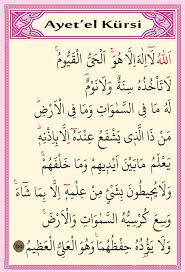 Ayet'el Kürsi
اَللّٰهُ لَٓا اِلٰهَ اِلَّا هُوَۚ اَلْحَيُّ الْقَيُّومُۚ
لَا تَأْخُذُهُ سِنَةٌ وَلَا نَوْمٌۜ
لَهُ مَا فِي السَّمٰوَاتِ وَمَا فِي الْاَرْضِۜ
مَنْ ذَا الَّذِي يَشْفَعُ عِنْدَهُٓ اِلَّا بِاِذْنِهِۜ
يَعْلَمُ مَا بَيْنَ اَيْدِيهِمْ وَمَا خَلْفَهُمْۚ
وَلَا يُحِيطُونَ بِشَيْءٍ مِنْ عِلْمِهِٓ اِلَّا بِمَا شَٓاءَۚ
وَسِعَ كُرْسِيُّهُ السَّمٰوَاتِ وَالْاَرْضَۚ
وَلَا يَؤُدُهُ حِفْظُهُمَاۚ وَهُوَ الْعَلِيُّ الْعَظِيمُ